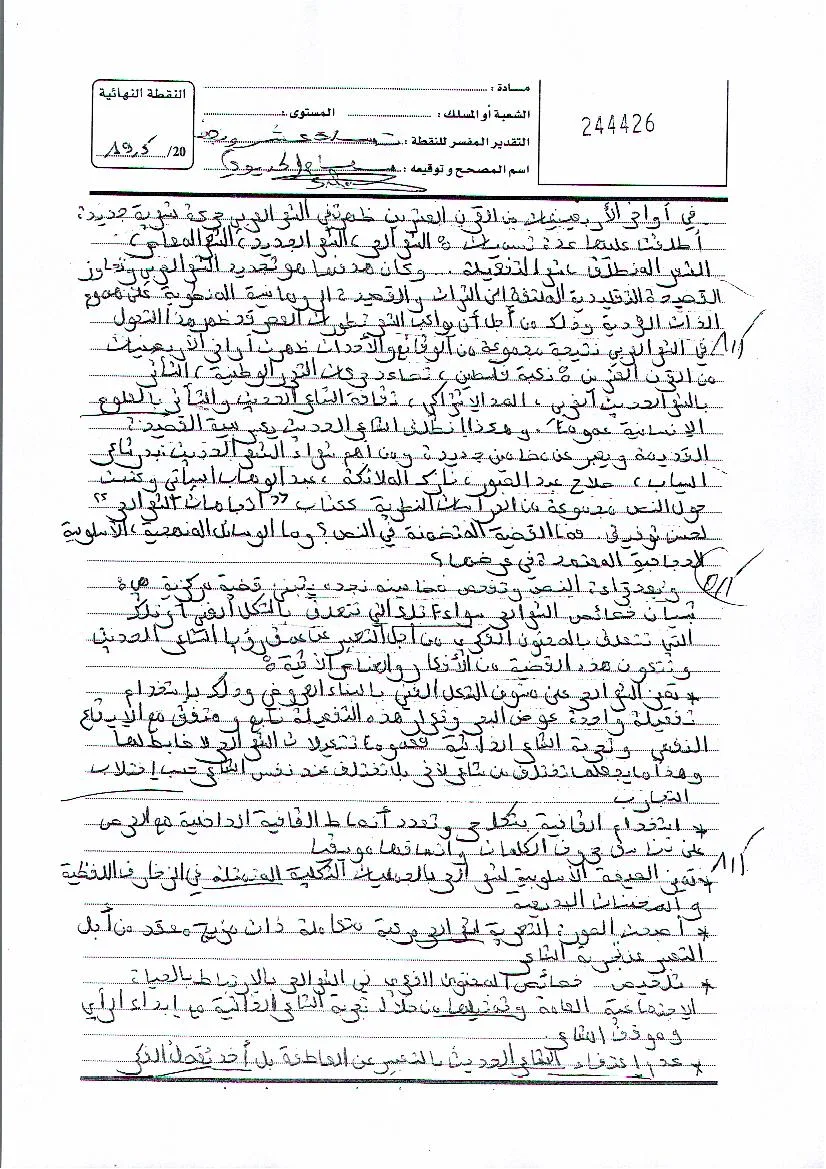 مادة :
الشعبة أو المسلك : المستوى :
التقدير المفسر للنقطة :
اسم المصحح و توقيعه :
النقطة النهائية
19,5 /20
244426
في أواخر الأربعينيات من القرن العشرين ظهرت في الشعر العربي حركة شعرية جديدة
أطلقت عليها عدة تسميات : الشعر الحر، الشعر الجديد، الشعر المعاصر،
الشعر المنطلق، شعر التفعيلة. وكان هدفها هو تجديد الشعر العربي وتجاوز
القصيدة التقليدية الملتفتة إلى التراث والقصيدة الرومانسية المنطوية على هموم
الذات الفردية وذلك من أجل أن يواكب الشعر تطورات العصر قد ظهر هذا التحول
في الشعر العربي نتيجة مجموعة من الوقائع والأحداث ظهرت أواخر الأربعينيات
من القرن العشرين : نكبة فلسطين، تصاعد حركات التحرر الوطنية، التأثر
بالشعر الحديث الغربي، المد الاشتراكي، ثقافة الشاعر الحديث والتأثر بالعلوم
الإنسانية عموما. وهكذا انطلق الشاعر الحديث يغير بنية القصيدة
القديمة ويعبر عن مضامين جديدة ومن أهم شعراء الشعر الحديث بدر شاكر
السياب، صلاح عبد الصبور، نازك الملائكة، عبد الوهاب البياتي وكتبت
حول النص مجموعة من الدراسات النظرية ككتاب "اتجاهات الشعر الحر"
لحسن توفيق. فما القضية المتضمنة في النص؟ وما الوسائل المنهجية، الأسلوبية
الحجاجية المعتمدة في عرضها؟
وبعد قراءة النص وتفحص مضامينه نجده يتبنى قضية مركزية هي :
تبيان خصائص الشعر الحر سواء تلك التي تتعلق بالشكل الفني أو تلك
التي تتعلق بالمضمون الفكري من أجل التعبير عن عمق رؤيا الشاعر الحديث
وتتكون هذه القضية من الأفكار والعناصر الآتية :
* تميز الشعر الحر على مستوى الشكل الفني بالبناء العروضي وذلك باستخدام
تفعيلة واحدة عوض البحر وتكرار هذه التفعيلة تابع ومتفق مع الإيقاع
النفسي وتجربة الشاعر الذاتية فمجموع تشكيلات الشعر الحر لا ضابط لها
وهذا ما يجعلها تختلف من شاعر لآخر بل تختلف عند نفس الشاعر حسب اختلاف
التجارب
* استخدام القافية بشكل حر وتعدد أنماط القافية الداخلية مع الحرص
على تناسق حروف الكلمات واتساقها موسيقيا
* تميز الصيغة الأسلوبية للشعر الحر بالجماليات الشكلية المتمثلة في الزخارف اللفظية
و المحسنات البديعية
* أصبحت الصورة الشعرية للشعر الحر مركبة متكاملة ذات مزيج معقد من أجل
التعبير عن تجربة الشاعر
* تلخيص خصائص المحتوى الفكري في الشعر الحر بالارتباط بالحياة
الاجتماعية العامة وتمثيلها من خلال تجربة الشاعر الذاتية مع إبداء الرأي
وموقف الشاعر
* عدم اكتفاء الشاعر الحديث بالتعبير عن العاطفة بل أخذ